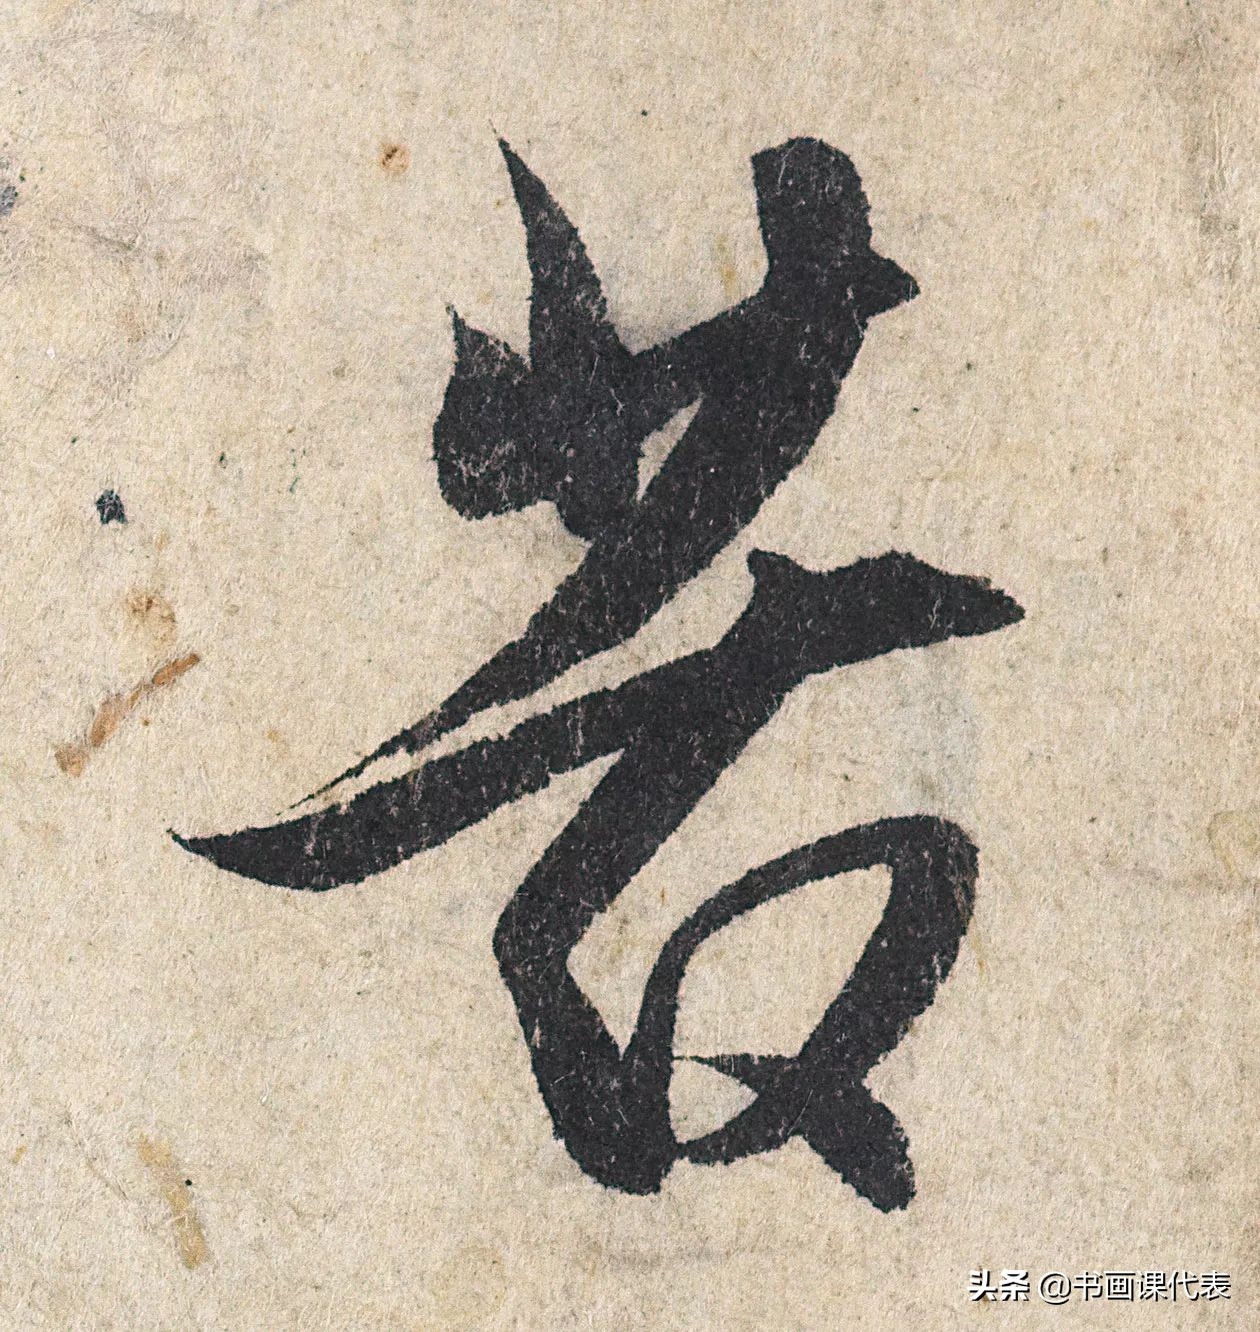 若
头条 @书画课代表